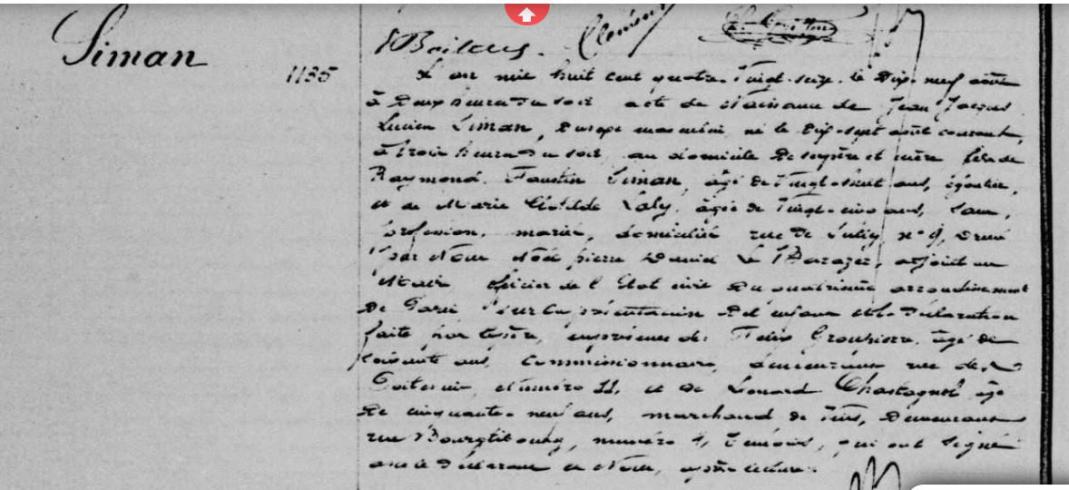 Siman
1135
L'an mil huit cent quatre-vingt-seize, le dix-neuf août
à deux heures du soir acte de Naissance de Jean Jacques
Lucien Siman, du sexe masculin, né le dix-sept août courant,
à trois heures du soir, au domicile de ses père et mère fils de
Raymond Faustin Siman, âgé de vingt-huit ans,
et de Marie Clotilde Laly, âgée de vingt-cinq ans, sans
profession, mariés, domiciliés rue de n° 9, Dressé
par Nous Noël pierre Daniel Le Barazer, adjoint au
Maire officier de l'Etat civil du quatrième arrondissement
de Paris sur la présentation de l'enfant et la déclaration
faite par le père, en présence de: Felix âgé de
soixante ans, commissionnaire, demeurant rue des
numéro 11, et de Léonard Chastagnol âgé
de cinquante-neuf ans, marchand de vins, demeurant
rue Bourgtibourg, numéro témoins, qui ont signé
avec le déclarant et Nous, après lecture.